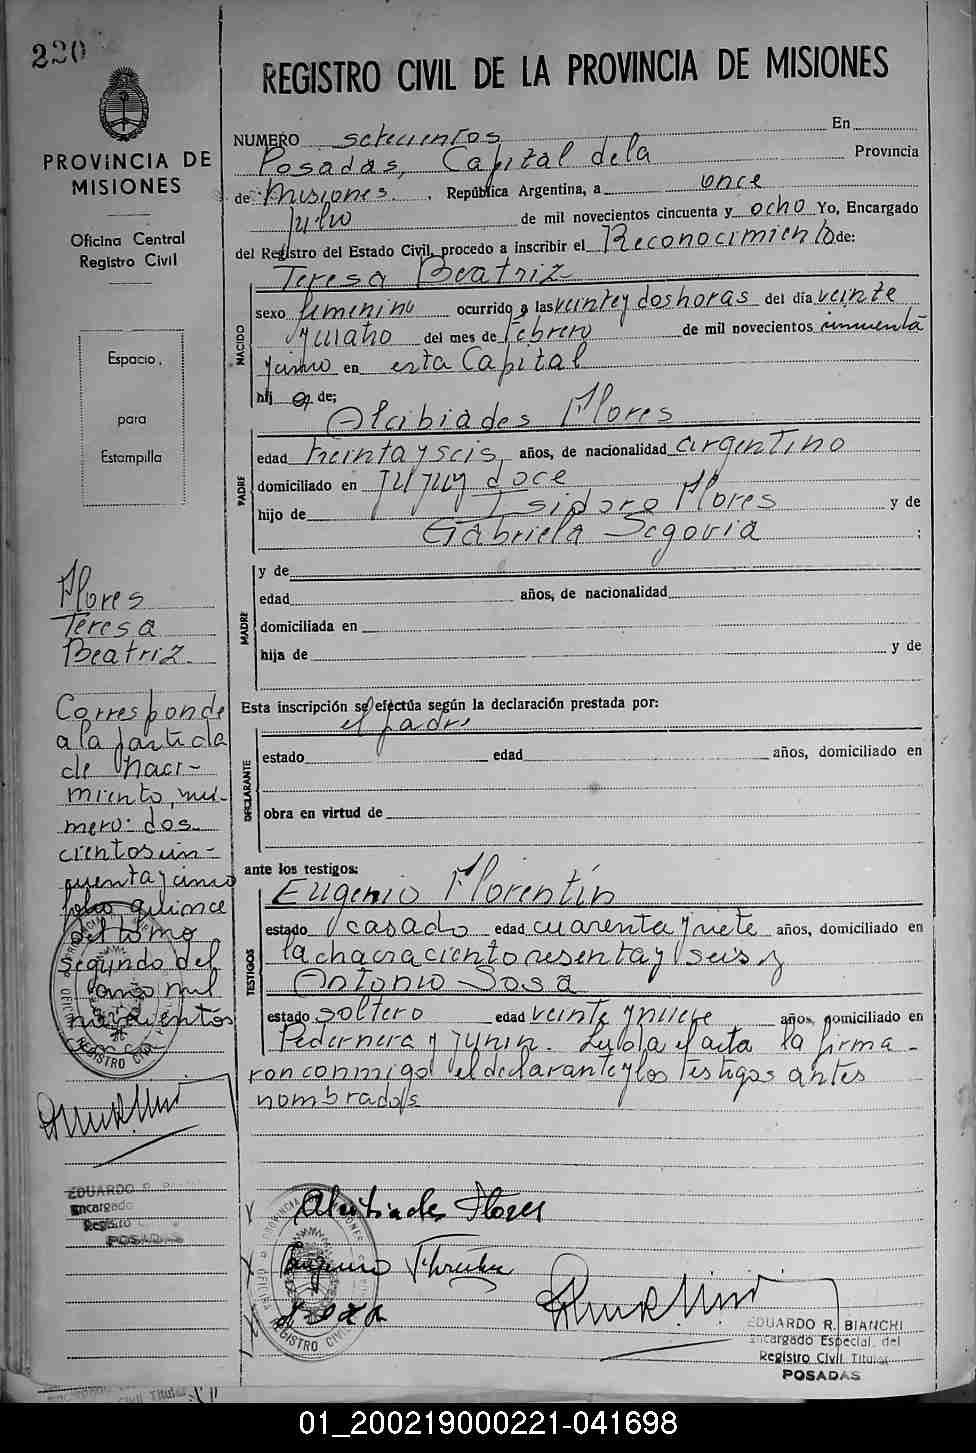 220
PROVINCIA DE
MISIONES
Oficina Central
Registro Civil
Espacio,
para
Estampilla
Flores
Teresa
Beatriz
Corresponde
a la partida
de naci-
miento, nú-
mero: dos
cientos cin-
cuenta y cinco
folio quince
del tomo
segundo del
año mil
novecientos
EDUARDO R. BIANCHI
Encargado
Registro C
POSADAS
REGISTRO CIVIL DE LA PROVINCIA DE MISIONES
NUMERO setecientos En
Posadas, Capital de la Provincia
de Misiones. República Argentina, a once
Julio de mil novecientos cincuenta y ocho Yo, Encargado
del Registro del Estado Civil, procedo a inscribir el Reconocimiento de:
NACIDO
Teresa Beatriz
sexo femenino ocurrido a las veinte y dos horas del día veinte
y cuatro del mes de Febrero de mil novecientos cincuenta
y cinco en esta Capital
hija de;
PADRE
Alcibiades Flores
edad treinta y seis años, de nacionalidad argentino
domiciliado en Jujuy doce
hijo de Isidoro Flores y de
Gabriela Segovia ;
MADRE
y de
edad años, de nacionalidad
domiciliada en
hija de y de
Esta inscripción se efectúa según la declaración prestada por:
el padre
DECLARANTE
estado edad años, domiciliado en
obra en virtud de
ante los testigos:
TESTIGOS
Eugenio Florentín
estado casado edad cuarenta y siete años, domiciliado en
la chacra ciento sesenta y seis y
Antonio Sosa
estado soltero edad veinte y nueve años, domiciliado en
Pedernera y Junin. Leida el acta la firma-
ron conmigo el declarante y los testigos antes
nombrados
Alcibiades Flores
Eugenio Florentin
Sosa
EDUARDO R. BIANCHI
Encargado Especial del
Registro Civil Titular
POSADAS
01_200219000221-041698